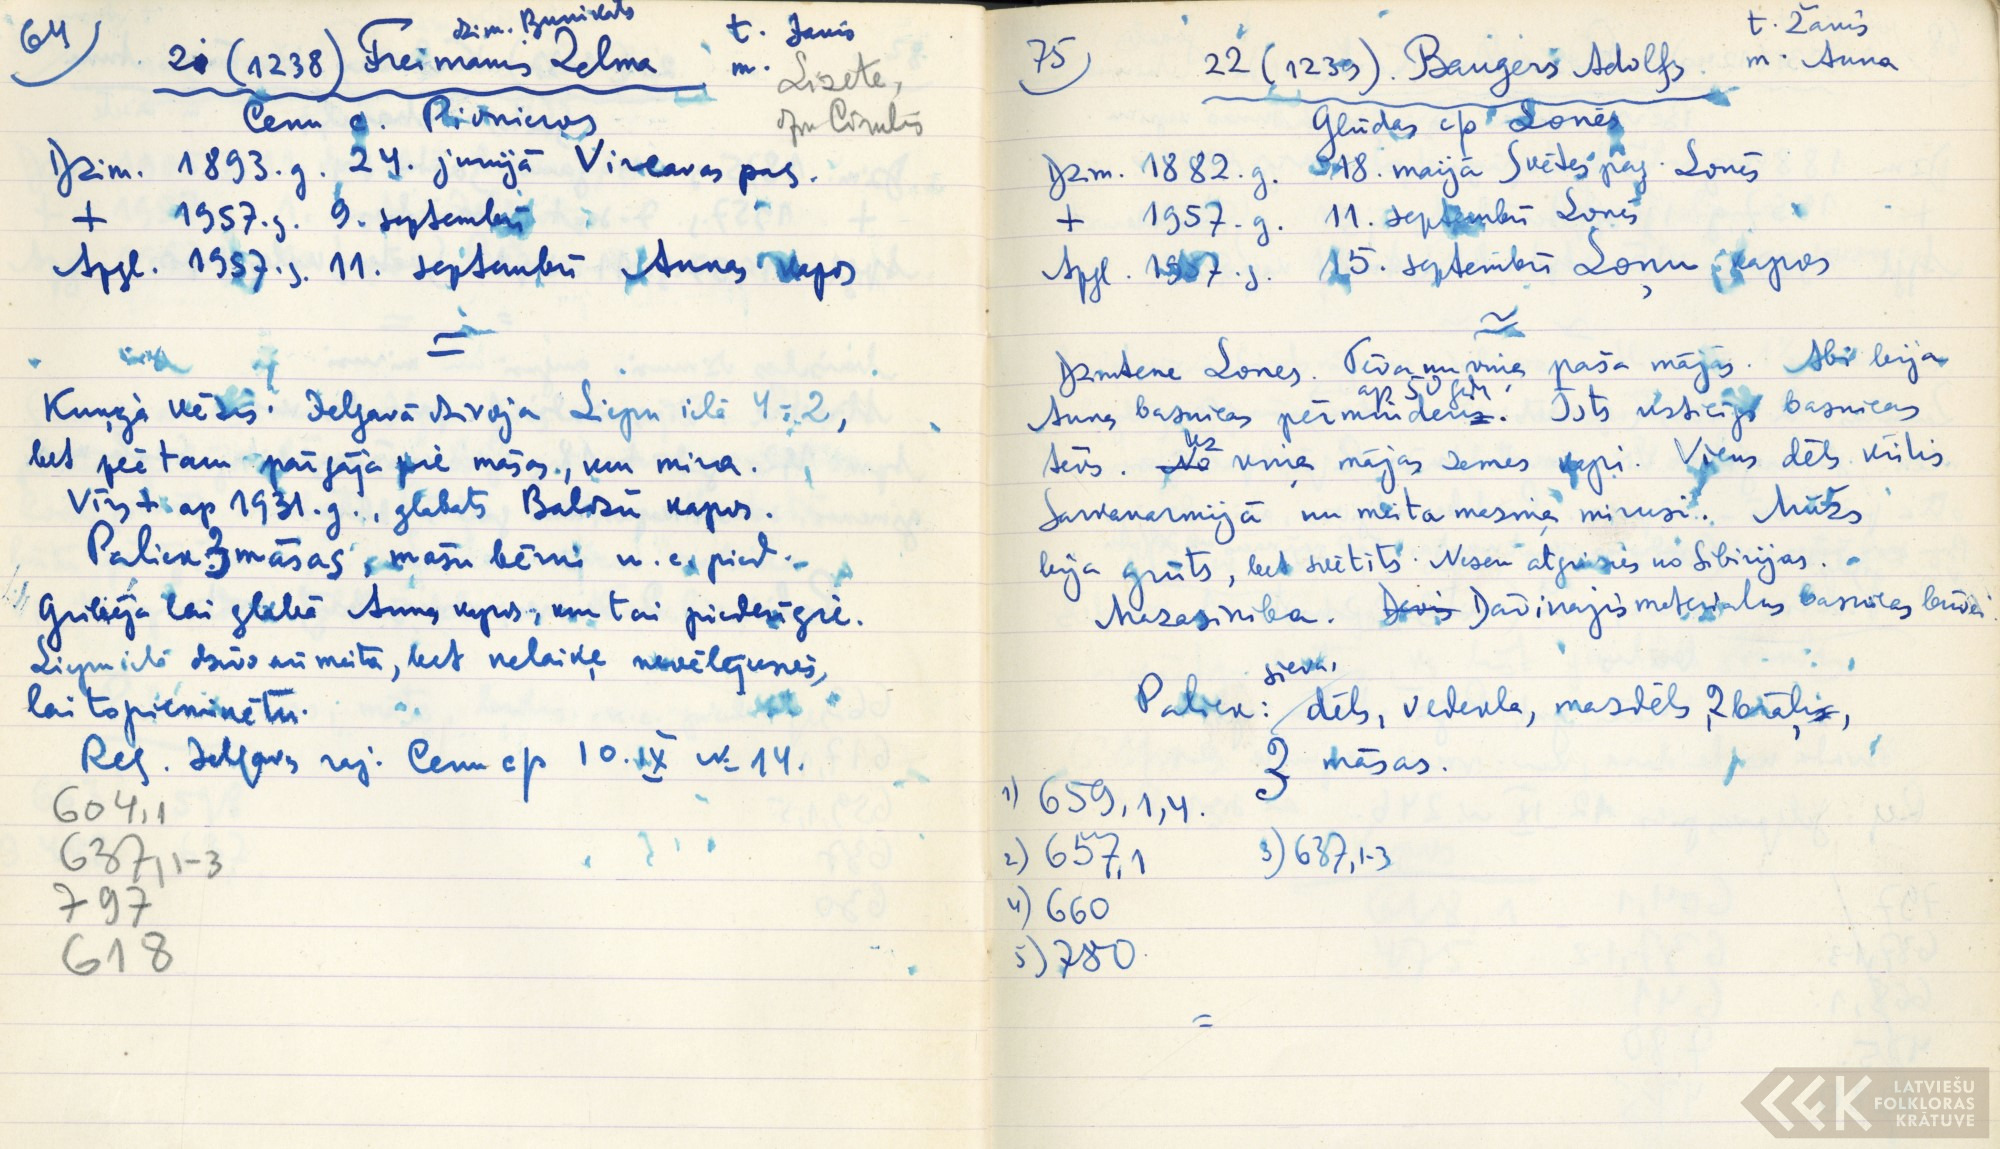 64)
dzim. Bunikats
t. Janis
21 (1238) Freimanis Zelma
m. Lizete,
dz. Cīrulis
Cenu c. Pionieros
Dzim. 1893.g. 24. junijā Vircavas pag.
+ 1957.g. 9. septembrī
Apgl. 1957.g. 11. septembrī Annas kapos
=
Kuņģa vēzis. Jelgavā dzivoja Liepu ielā 4-2,
bet pēctam pārgāja pie māsas, kur mira.
Vīrs + ap 1931.g., glabats Baložu kapos.
Paliek 3 māsas, māsu bērni u.c. pied.
Gribēja lai glabā Annas kapos, kur tai piederīgie.
Liepu ielā dzīvo arī meita, bet nelaiķe nevēlējusies,
lai to pieminētu.
Reg. Jelgavas raj. Cenu cp 10.IX № 14.
604,1
637,1-3
797
618
75)
t. Žanis
22 (1239). Baugers Adolfs.
m. Anna
Glūdas cp Lonēs
Dzim. 1882.g. 18. maijā Svētes pag. Lonēs
+ 1957.g. 11. septembrī Lonēs
Apgl. 1957.g. 15. septembrī Loņu kapos
=
Dzimtene Lones. Tēva un viņa paša mājās. Abi bija
ap 50 gadi
Annas basnicas pērminderi. Īsts uzticīgs basnicas
tēvs. No uz viņa mājas zemes kapi. Viens dēls kritis
Sarkanarmijā un meita maziņa mirusi. Mūžs
bija grūts, bet svētīts. Nesen atgriezies no Sibirijas.
Mazasiniba. Devis Davinajis materialus basnicas buvei.
sieva,
Paliek: dēls, vedekla, mazdēls, 2 brāļi,
3 māsas.
1) 659,1,4.
2) 657,1 3) 637,1-3
4) 660
5) 780
=
LATVIEŠU
FOLKLORAS
KRĀTUVE